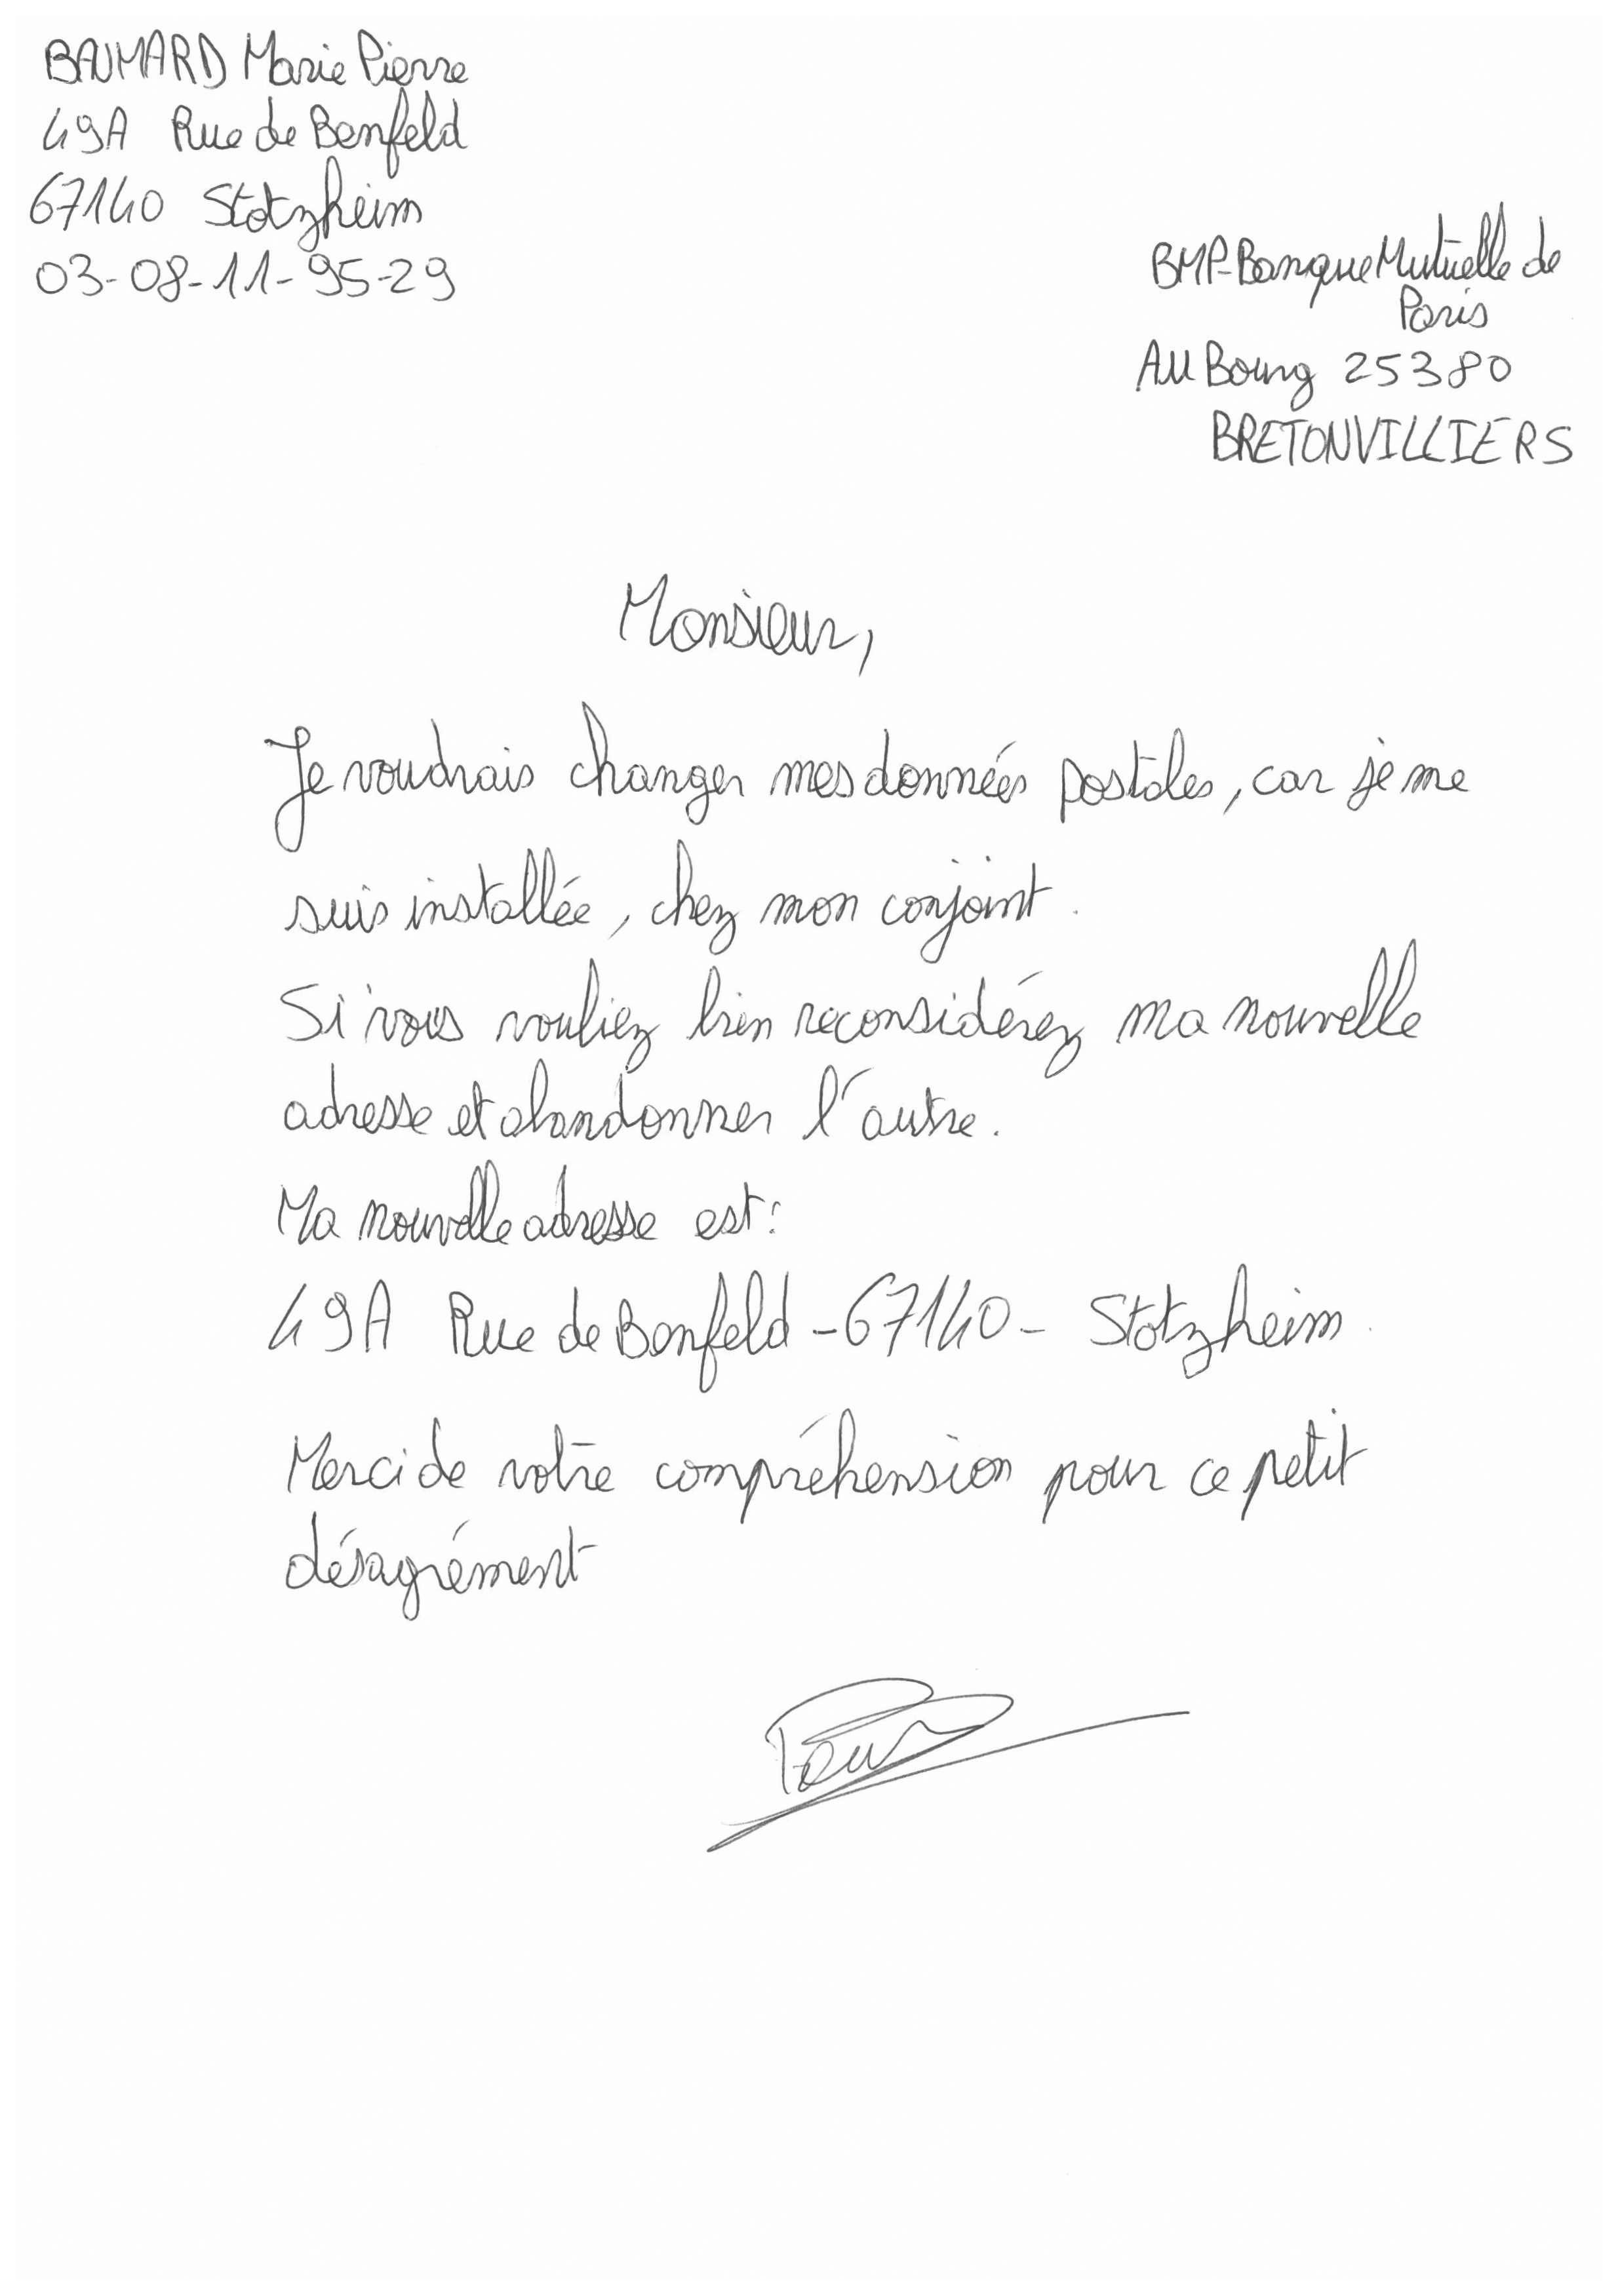 BAUMARD Marie Pierre
49A Rue de Benfeld
67140 Stotzheim
03-08-11-95-29
BMP-Banque Mutuelle de
Paris
Au Bourg 25380
BRETONVILLIERS
Monsieur,
Je voudrais changer mes données postales, car je me
suis installée, chez mon conjoint.
Si vous vouliez bien reconsidérez ma nouvelle
adresse et abandonner l'autre.
Ma nouvelle adresse est:
49A Rue de Benfeld-67140- Stotzheim.
Merci de votre compréhension pour ce petit
désagrément